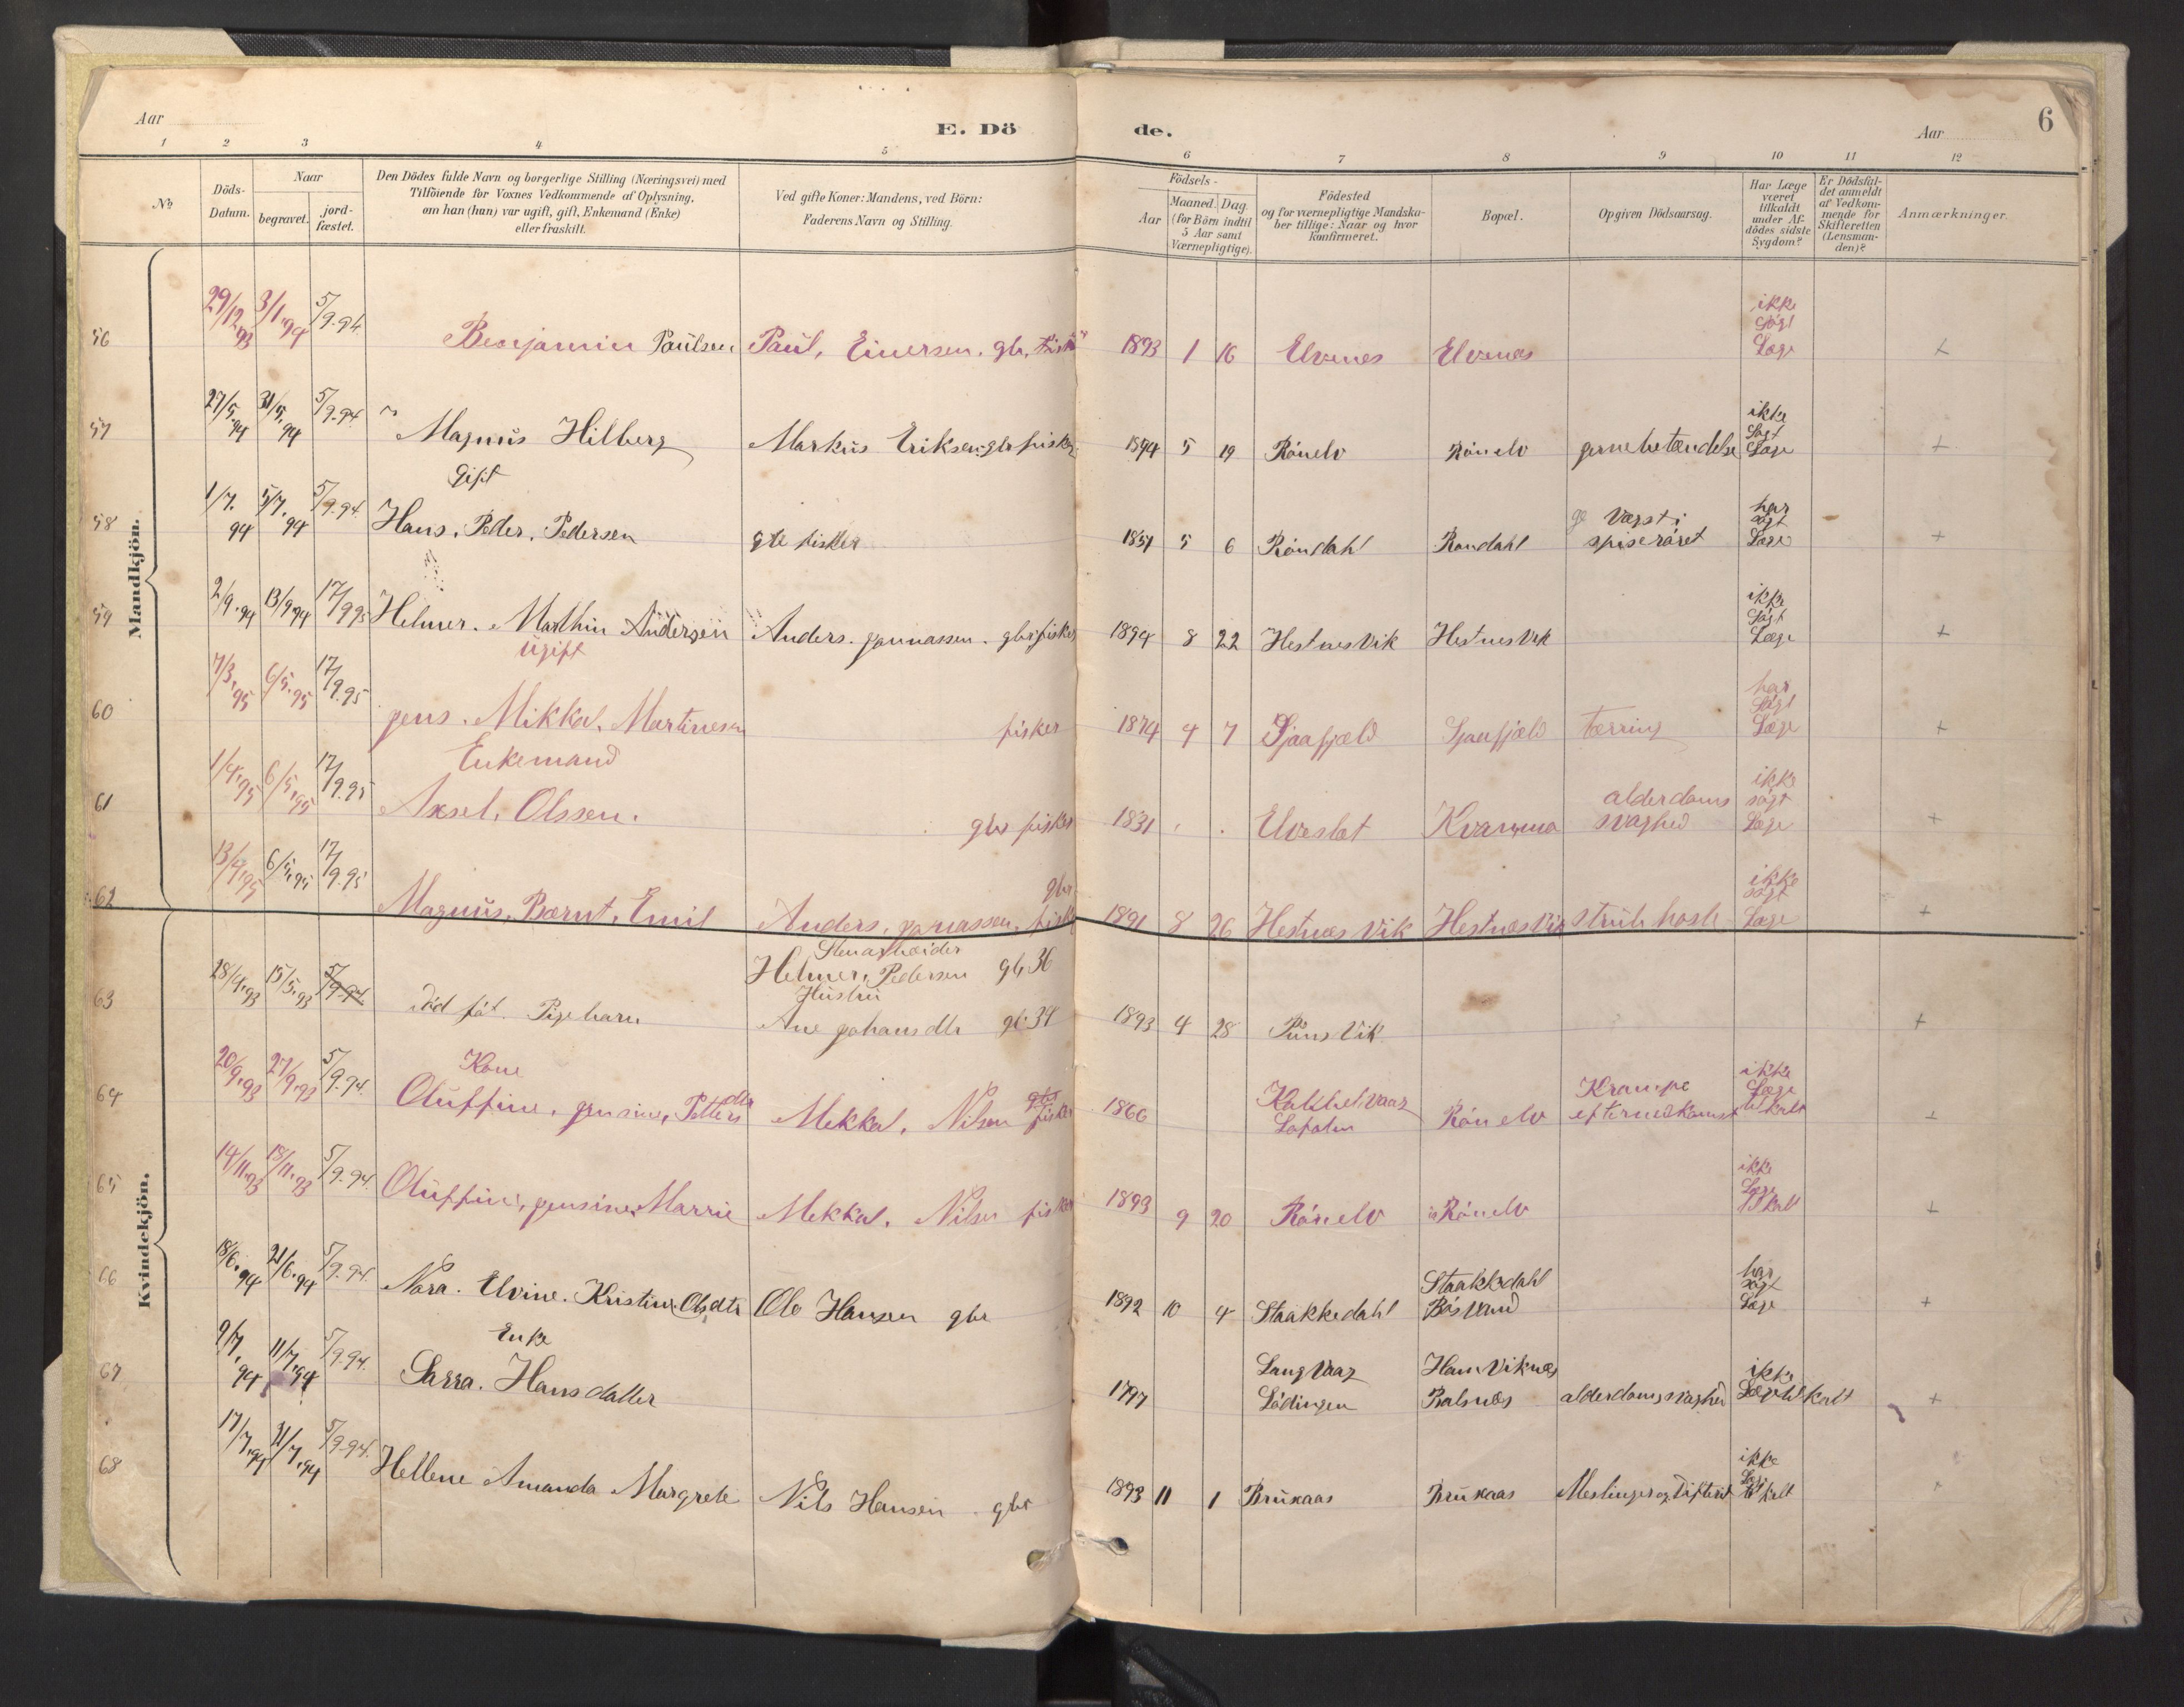 Aar
E. Dö
de.
Aar
6
1 2 3 4 5 6 7 8 9 10 11 12
No
Döds-
Datum.
Naar
begravet.
jord-
fæstet.
Den Dödes fulde Navn og borgerlige Stilling (Næringsvei) med
Tilföiende for Voxnes Vedkommende af Oplysning,
om han (hun) var ugift, gift, Enkemand (Enke)
eller fraskilt.
Ved gifte Koner: Mandens, ved Börn:
Faderens Navn og Stilling.
Födsels-
Aar
Maaned. Dag.
(for Börn indtil
5 Aar samt
Værnepligtige).
Födested
og for værnepligtige Mandska-
ber tillige: Naar og hvor
konfirmeret.
Bopæl.
Opgiven Dödsaarsag.
Har Læge
været
tilkaldt
under Af-
dödes sidste
Sygdom?
Er Dödsfal-
det anmeldt
af Vedkom-
mende for
Skifteretten
(Lensman-
den)?
Anmærkninger.
Mandkjön.
56 29/12.93 3/1.94 5/9.94. Benjamin Paulsen Paul, Einersen. gbr, 1893 1 16 Elvenes Elvenes ikke Søgt Læge +
57 27/5.94 31/5.94 5/9.94. Magnus Hilberg Markus Eriksen gbr fisker 1894 5 19 Rónelv Rónelv jernebetændelse ikke Søgt Læge +
Gift
58 1/7.94 5/7.94 5/9.94. Hans, Peder, Pedersen gbr fisker 1851 5 6 Róndahl Rondahl Væxst i spiseróret har søgt Læge +
59 2/9.94 13/9.94 17/9.95 Helmer. Marthin Andersen Anders. jonnassen. gbr fisker 1894 8 22 HestnesVik HestnesVik ikke Søgt Læge +
ugift
60 7/3.95 6/5.95 17/9.95 jens. Mikkal. Martinesen fisker 1874 4 7 Sjaafjæld Sjaafjæld tærring har Søgt Læge +
Enkemand
61 1/4.95 6/5.95 17/9.95 Aksel, Olssen. gbr fisker 1831 Elveslet Kvanma alderdoms svaghed ikke søgt Læge +
62 13/4.95 6/5.95 17/9.95 Magnus, Bærnt, Emil Anders, jonassen, gbr fisk 1891 8 26 Hestnæs Vik HestnæsVik ikke søgt Læge +
Kvindekjön.
63 28/4.93 15/5.93 5/9.94. dód fót. Pigebarn Stenarbeider
Helmer, Pedersen gb, 36
Hustru
Ane johansdtr gb. 34 1893 4 28 +
Kone
64 20/9.93 27/9.93 5/9.94. Oluffine, jensine, Petters dtr Mekkal, Nilsen gbr fisker 1866 Rónelv Krampe ikke Læge +
65 14/11.93 18/11.93 5/9.94. Oluffine, jensine, Marrie Mekkal, Nilsen fisker 1893 9 20 Rónelv Rónelv ikke Læge +
66 18/6.94 21/6.94 5/9.94. Nora. Elvine. Kristine. Olsdtr Ole Hansen gbr 1892 10 4 Staakkedahl Staakkedahl
Bósvand har søgt Læge +
Enke
67 9/7.94 11/7.94 5/9.94. Sarra. Hansdatter 1797 LangVaag
Lódingen HamViknæs
Balsnæs alderdomssvaghed ikke Læge tilkalt +
68 17/7.94 31/7.94 5/9.94. Hellene Amanda Margrete Nils Hansen gbr 1893 11 1 Brukaas Brukaas Meslinger og Difterit ikke Læge tilkalt +